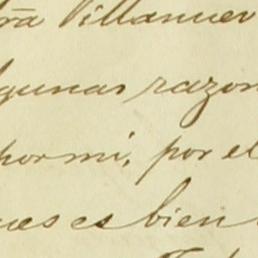 ra Villanuev
gunas razon
por mi, por el
ues es bien